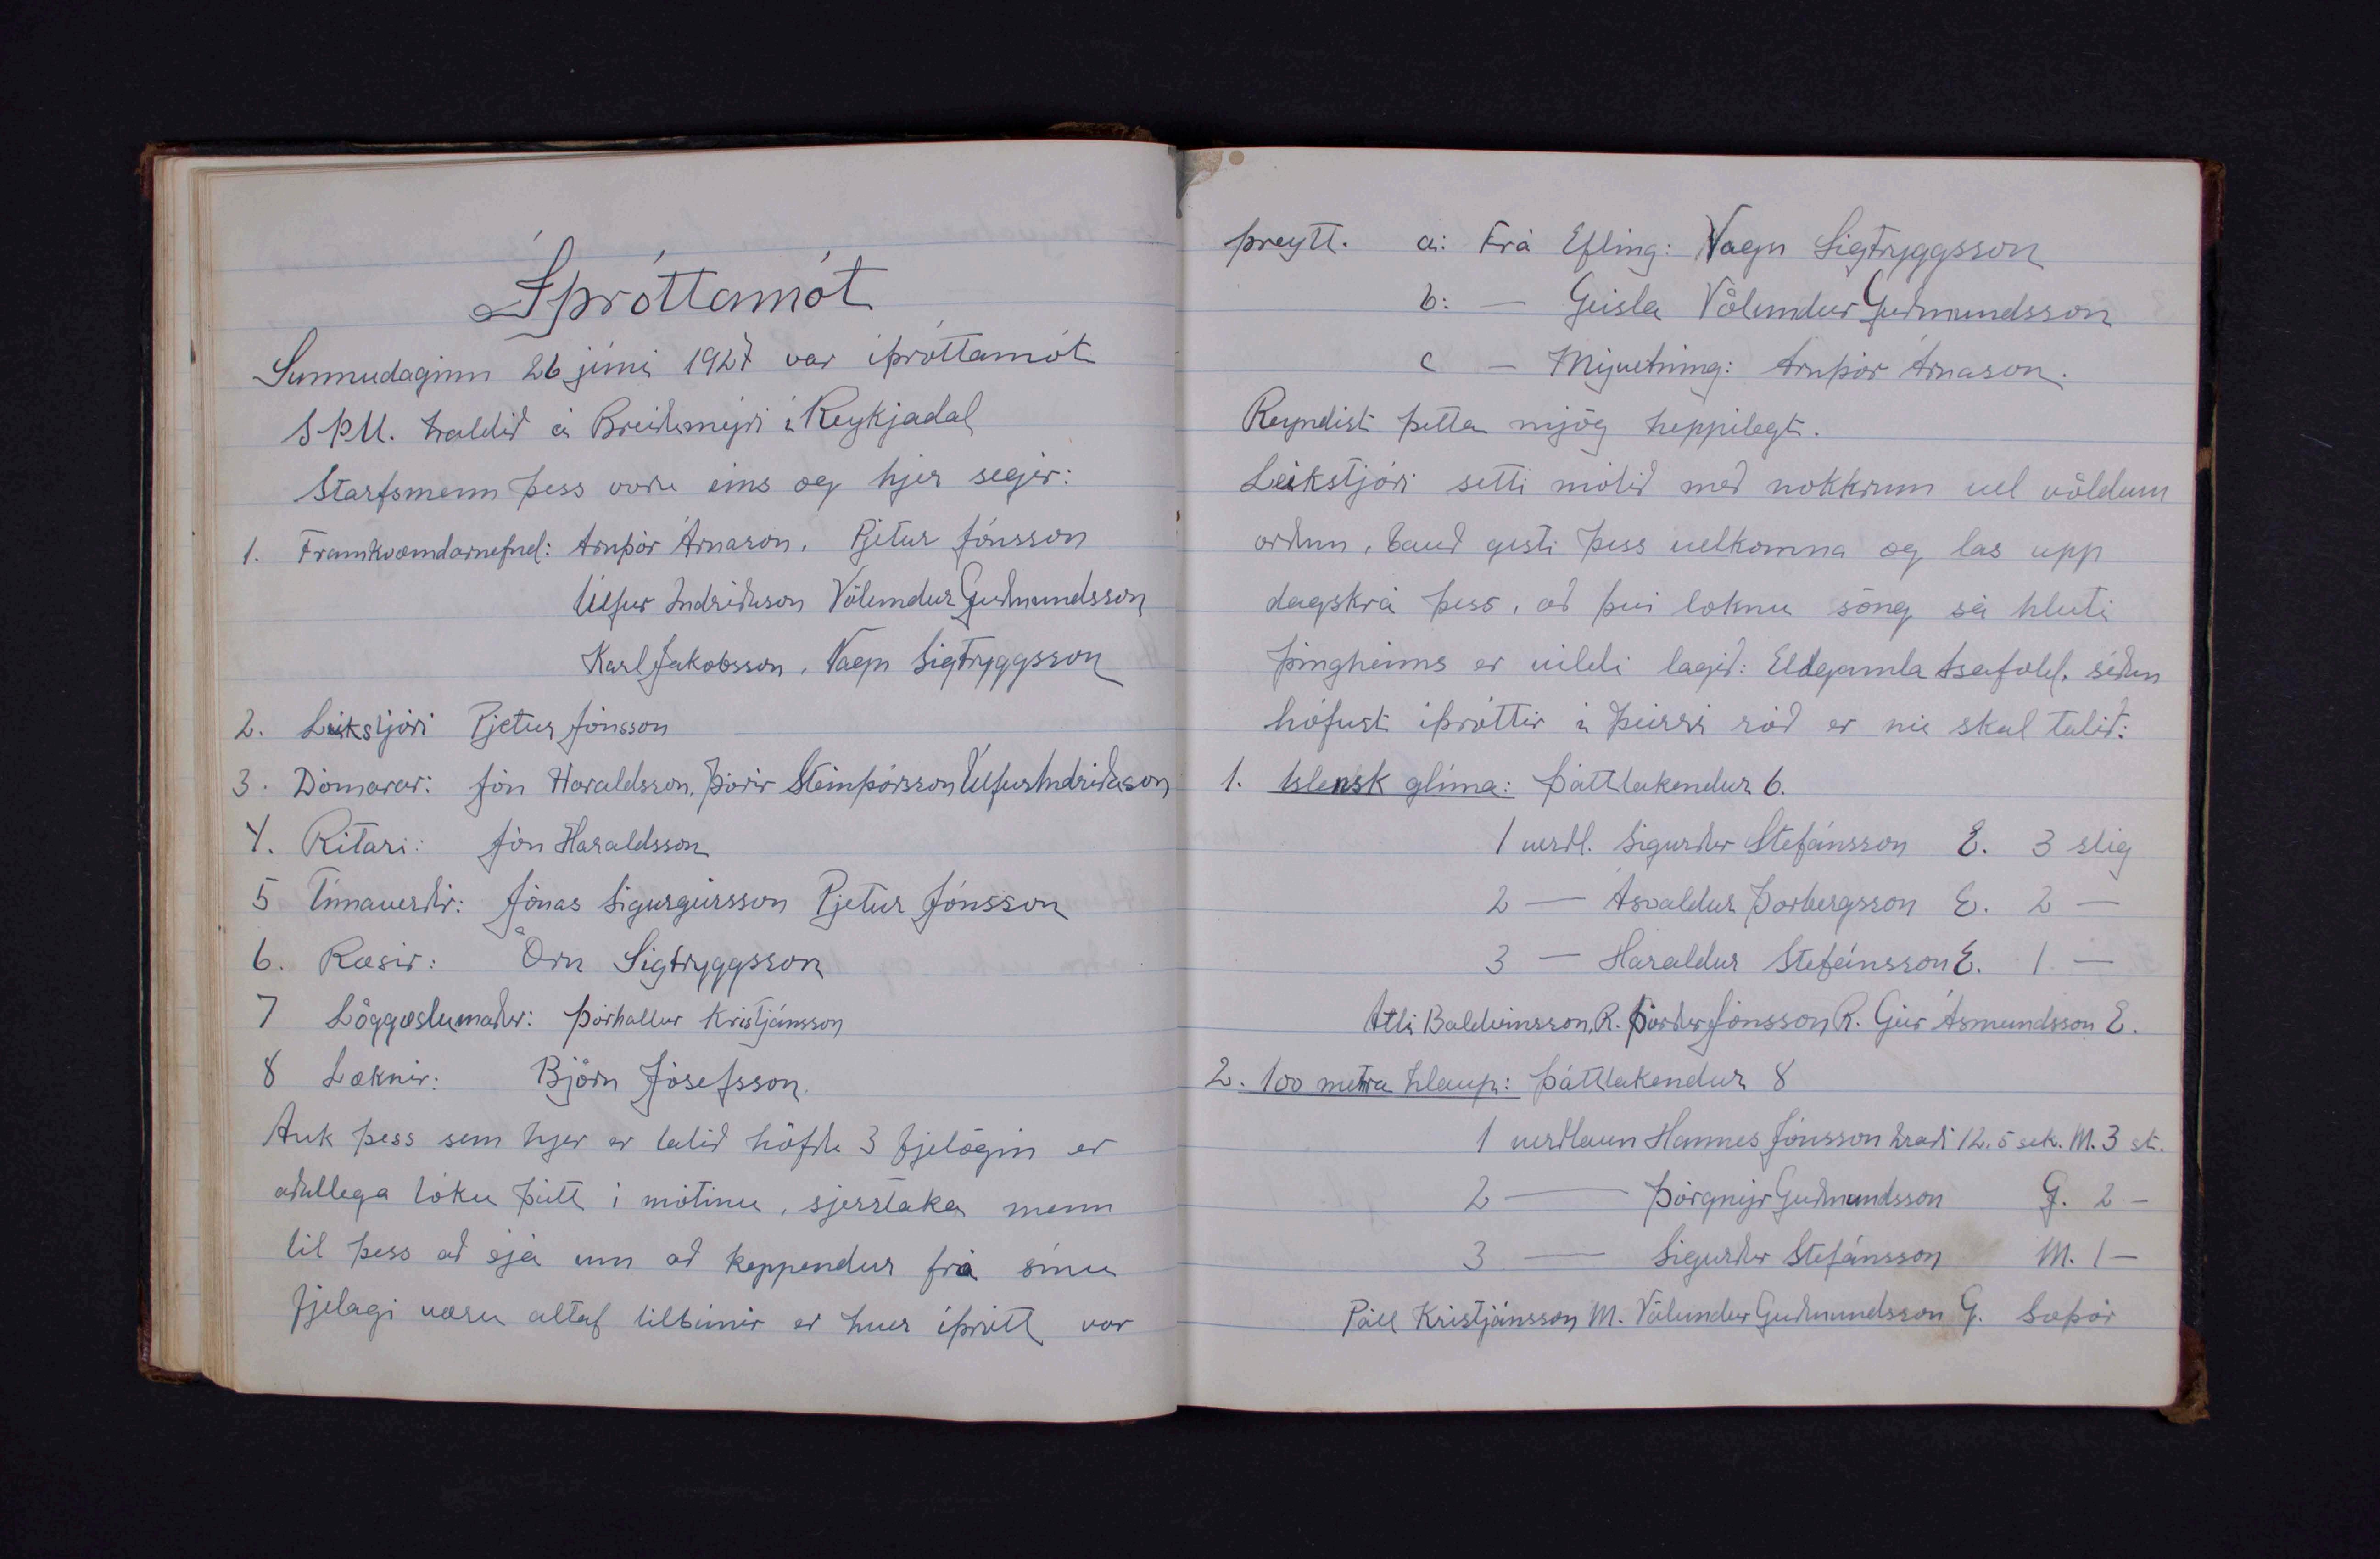 Íþróttamót
Sunnudaginn 26 júni 1927 var íþróttamót
SÞU. haldið á Breiðumýri í Reykjadal
Starfsmenn þess voru eins og hjer segir:
1. Framkvæmdarnefnd: Arnþór Árnason, Pjetur Jónsson
Úlfur Indriðason Völundur Guðmundsson
Karl Jakobsson, Vagn Sigtryggsson
2. Leikstjóri Pjetur Jónsson
3. Dómarar: Jón Haraldsson, Þórir Steinþórsson Úlfur Indriðason
4. Ritari: Jón Haraldsson
5 Tímaverðir: Jónas Sigurgeirsson Pjetur Jónsson
6. Ræsir: Örn Sigtryggsson
7 Löggæslumaður: Þórhallur Kristjánsson
8 Læknir: Björn Jósefsson.
Auk þess sem hjer er talið höfðu 3 fjelögin er
aðallega tóku þátt í mótinu, sjerstaka menn
til þess að sjá um að keppendur frá sínu
fjelagi væru altaf tilbúnir er hver íþrótt var
þreytt. a: Frá Efling: Vagn Sigtryggsson
b: — Geisla Völundur Guðmundsson
c — Mývetning: Arnþór Árnason.
Reyndist þetta mjög heppilegt.
Leikstjóri setti mótið með nokkrum vel völdum
orðum, bauð gesti þess velkomna og las upp
dagskrá þess, að því loknu söng sá hluti
þingheims er vildi lagið: Eldgamla Ísafold, síðan
hófust íþróttir í þeirri röð er nú skal talið:
1. Íslensk glíma: Þátttakendur 6.
1 verðl. Sigurður Stefánsson E. 3 stig
2 — Ásvaldur Þorbergsson E. 2 —
3 — Haraldur Stefánsson E. 1 —
Atli Baldvinsson, R. Þórður Jónsson R. Geir Ásmundsson E.
2. 100 metra hlaup: Þátttakendur 8
1 verðlaun Hannes Jónsson hraði 12,5 sek. M. 3 st.
2 — Þórgnýr Guðmundsson G. 2 —
3 — Sigurður Stefánsson M. 1 —
Páll Kristjánsson M. Völundur Guðmundsson G. Sæþór